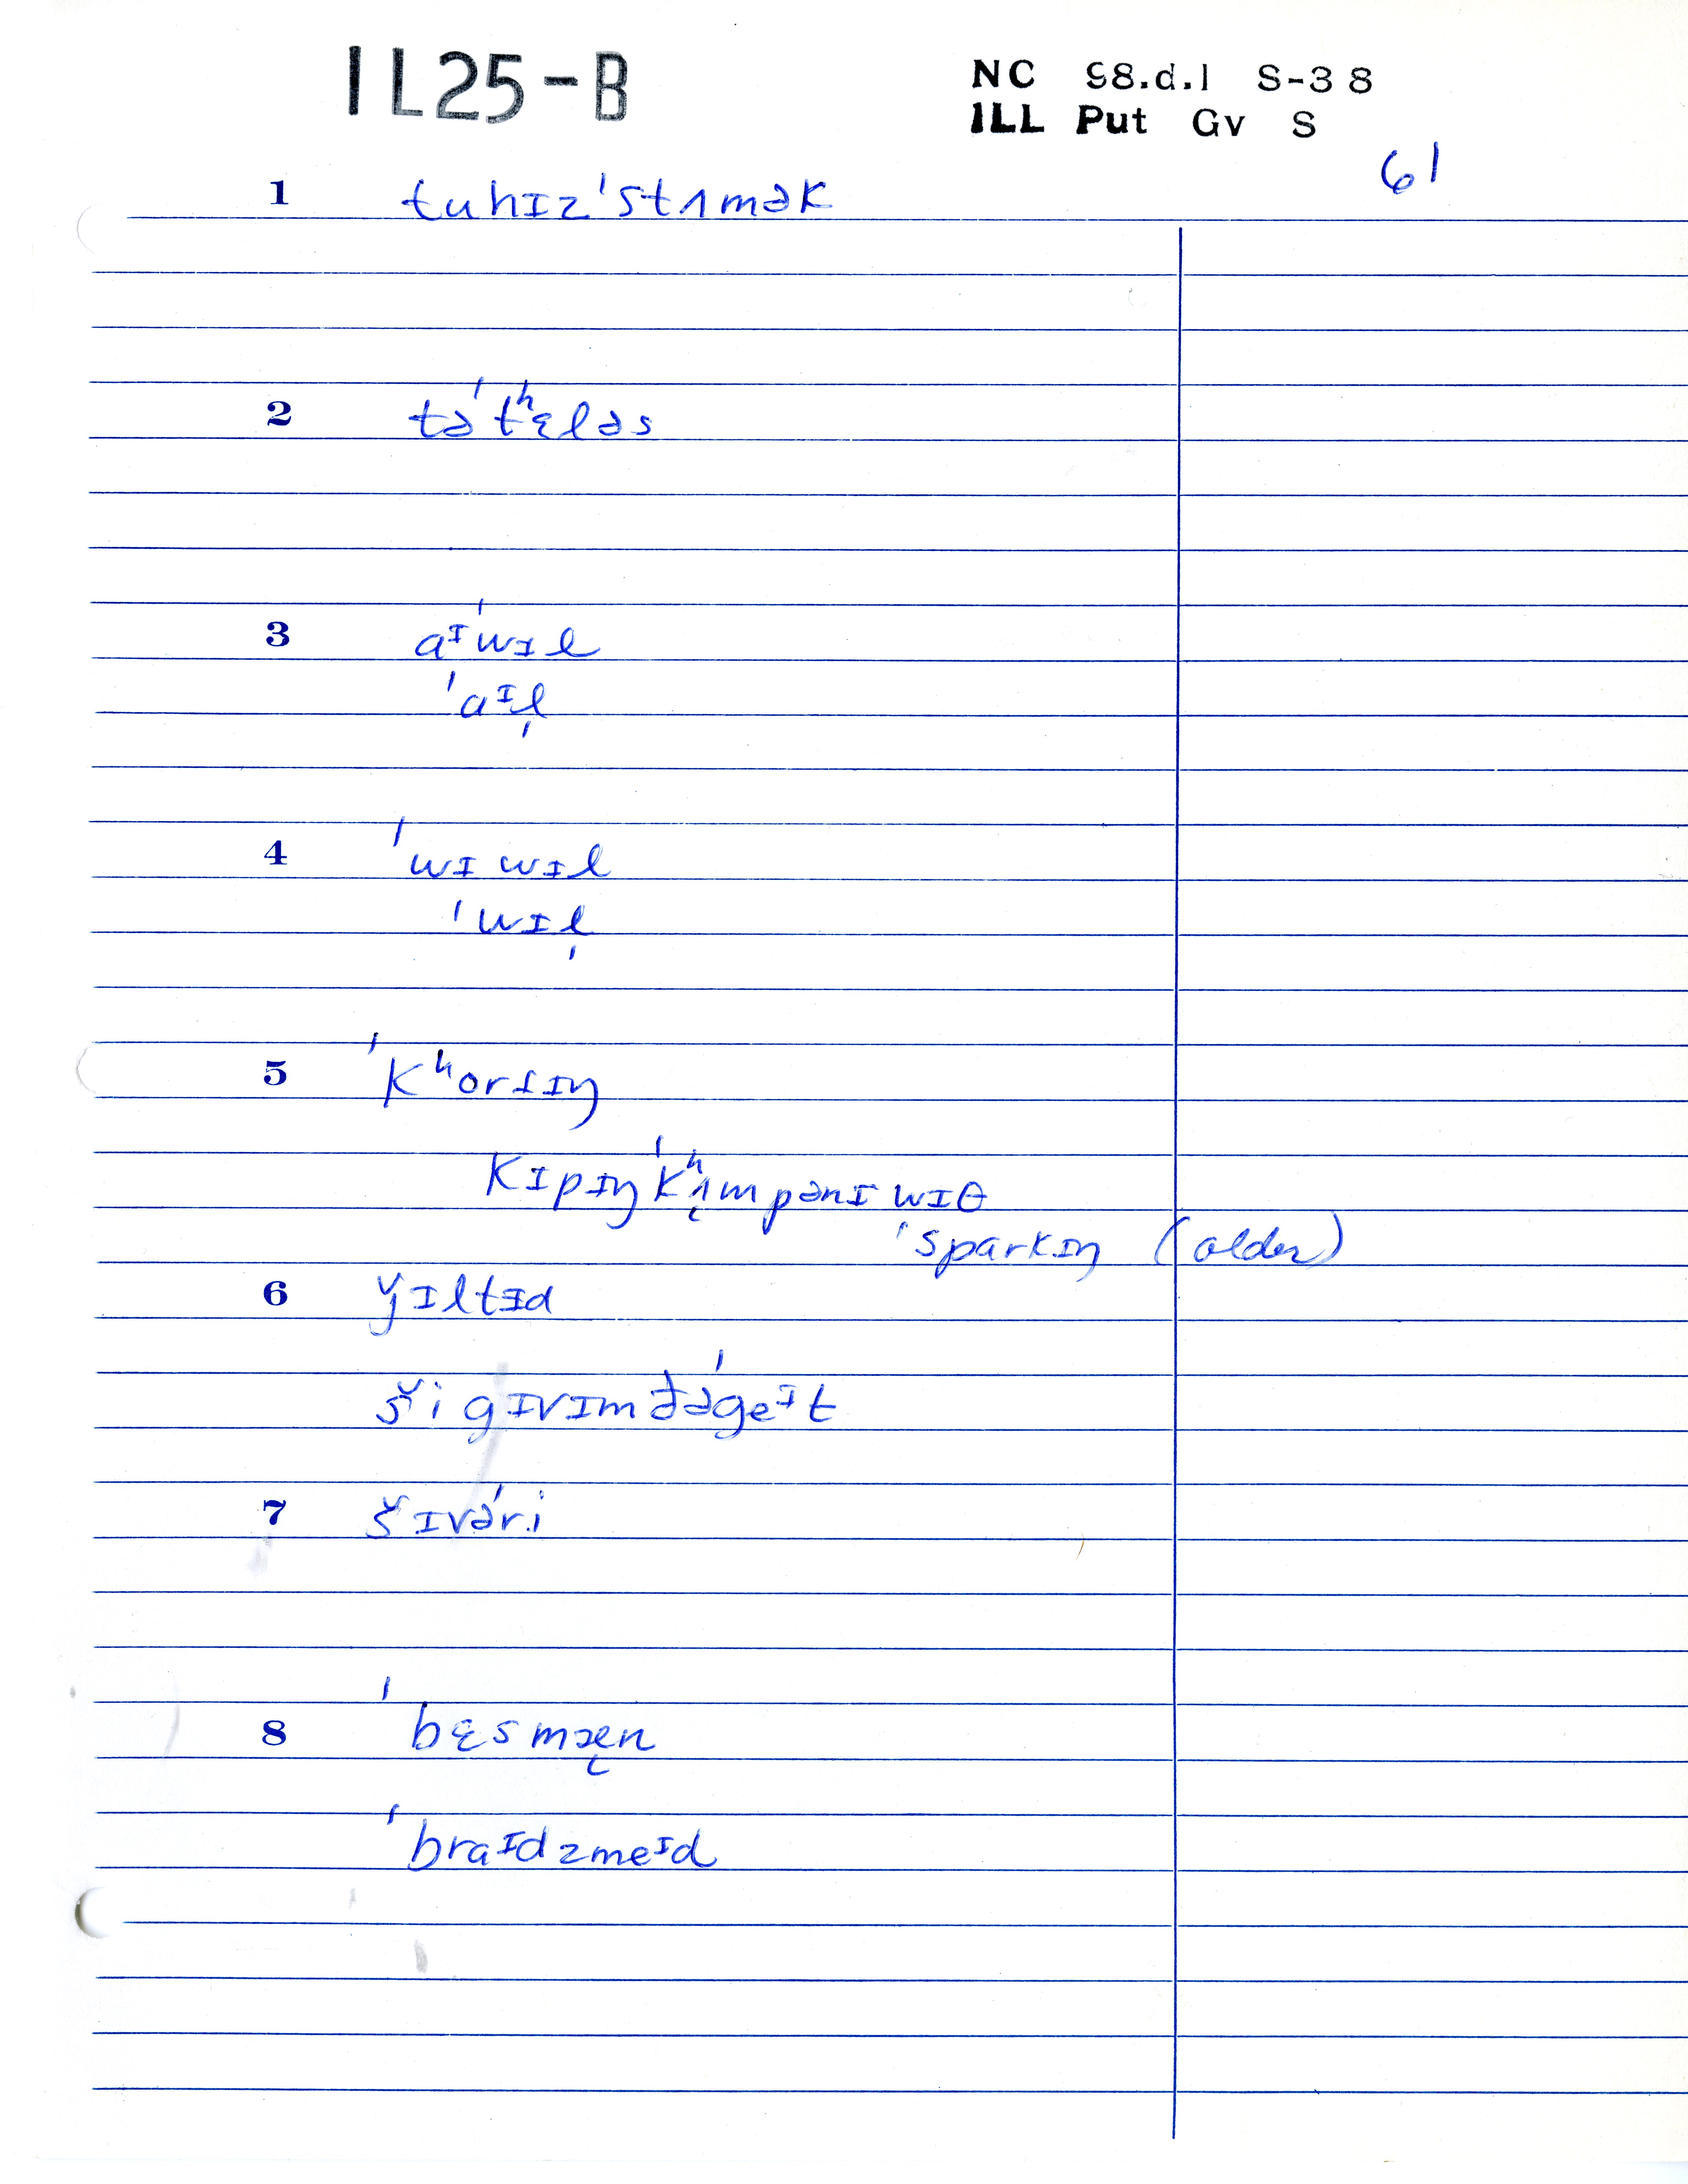 1L25-B
NC 98.d.1 S-38
ILL Put Gv S
61
1 tuhɪz ˈstʌmək
2 təˈtʰɛ̨ləs
3 aᴵˈwɪl
ˈaᴵl̩
4 ˈwɪ wɪl
ˈwɪl̩
5 ˈkʰortɪŋ
kɪpɪŋ ˈkʰʌ̨mpənɪ wɪθ
ˈsparkɪŋ (older)
6 ǰɪltɪd
ši gɪvɪm ðəˈgeᴵt
7 šɪvəˈri
8 ˈbɛsmæ̨n
ˈbraᴵdzmeᴵd